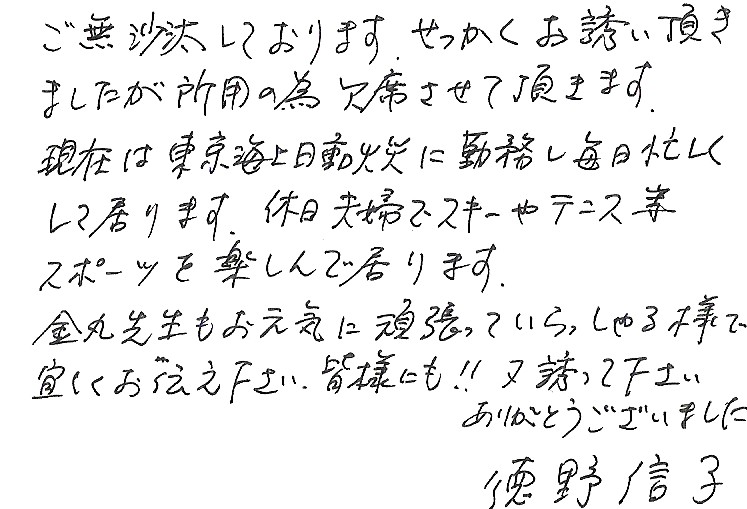 ご無沙汰しております。せっかくお誘い頂き
ましたが所用の為欠席させて頂きます。
現在は東京海上日動火災に勤務し毎日忙しく
して居ります。休日夫婦でスキーやテニス等
スポーツを楽しんで居ります。
金丸先生もお元気に頑張っていらっしゃる様で
宜しくお伝え下さい。皆様にも!!又誘って下さい
ありがとうございました
徳野信子